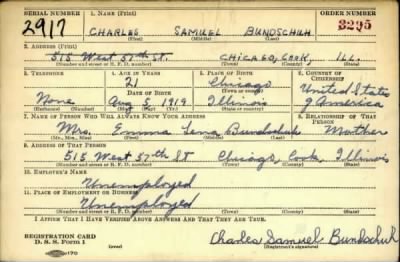 SERIAL NUMBER 1. NAME (Print) ORDER NUMBER
2917 CHARLES SAMUEL BUNDSCHUH 3295
(First) (Middle) (Last)
2. ADDRESS (Print)
515 West 57th ST. CHICAGO, COOK, ILL.
(Number and street or R. F. D. number) (Town) (County) (State)
3. TELEPHONE 4. AGE IN YEARS 5. PLACE OF BIRTH 6. COUNTRY OF CITIZENSHIP
21 Chicago United States
DATE OF BIRTH (Town or county)
None Aug 5, 1919 Illinois of America
(Exchange) (Number) (Mo.) (Day) (Yr.) (State or country)
7. NAME OF PERSON WHO WILL ALWAYS KNOW YOUR ADDRESS 8. RELATIONSHIP OF THAT PERSON
Mrs. Emma Lena Bundschuh Mother
(Mr., Mrs., Miss) (First) (Middle) (Last)
9. ADDRESS OF THAT PERSON
515 West 57th ST Chicago, Cook, Illinois
(Number and street or R. F. D. number) (Town) (County) (State)
10. EMPLOYER'S NAME
Unemployed
11. PLACE OF EMPLOYMENT OR BUSINESS
Unemployed
(Number and street or R. F. D. number) (Town) (County) (State)
I AFFIRM THAT I HAVE VERIFIED ABOVE ANSWERS AND THAT THEY ARE TRUE.
REGISTRATION CARD
D. S. S. Form 1 (over) Charles Samuel Bundschuh
(Registrant's signature)